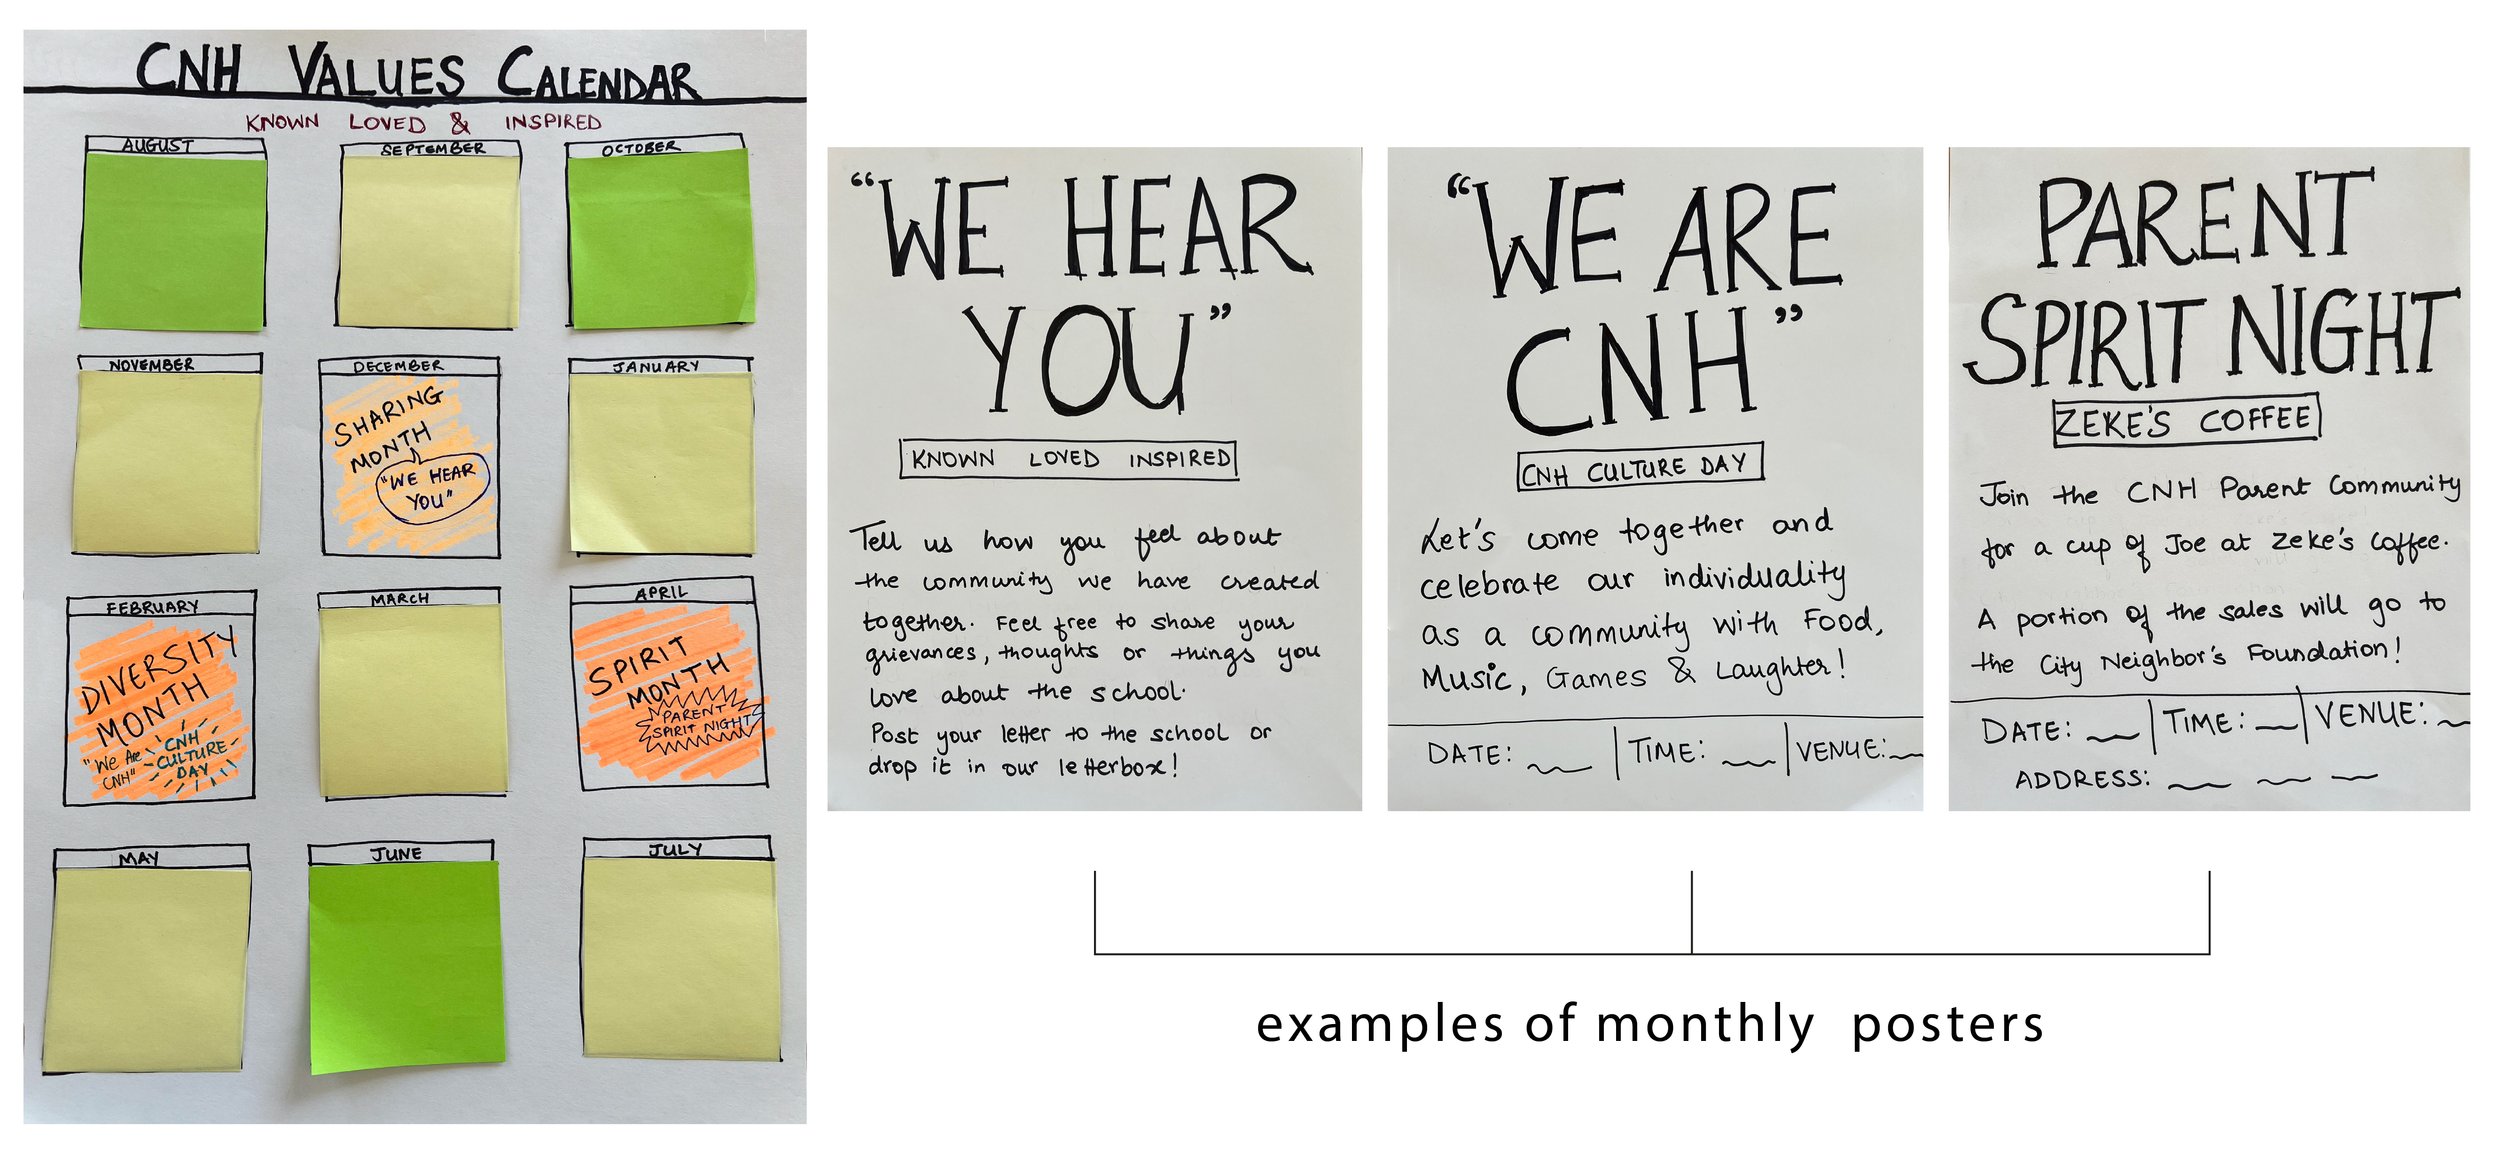 CNH VALUES CALENDAR
KNOWN LOVED & INSPIRED
AUGUST
SEPTEMBER
OCTOBER
NOVEMBER
DECEMBER
SHARING
MONTH
"WE HEAR
YOU"
JANUARY
FEBRUARY
DIVERSITY
MONTH
"We Are
CNH"
CNH
CULTURE
DAY
MARCH
APRIL
SPIRIT
MONTH
PARENT
SPIRIT NIGHT
MAY
JUNE
JULY
"WE HEAR
YOU"
KNOWN LOVED INSPIRED
Tell us how you feel about
the community we have created
together. Feel free to share your
grievances, thoughts or things you
love about the school.
Post your letter to the school or
drop it in our letterbox!
"WE ARE
CNH"
CNH CULTURE DAY
Let's come together and
celebrate our individuality
as a community with Food,
Music, Games & Laughter!
DATE: __ | TIME: __ | VENUE: __
PARENT
SPIRIT NIGHT
ZEKE'S COFFEE
Join the CNH Parent Community
for a cup of Joe at Zeke's Coffee.
A portion of the sales will go to
the City Neighbor's Foundation!
DATE: __ | TIME: __ | VENUE: __
ADDRESS: __ __ __
examples of monthly posters